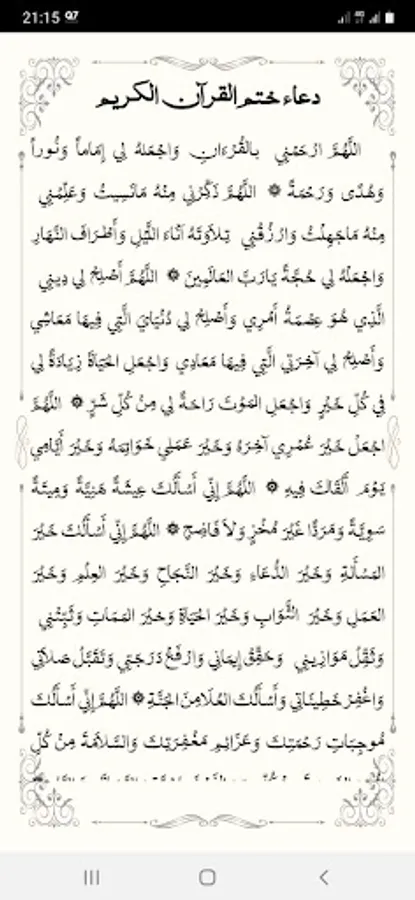 21:15
دعاء ختم القرآن الكريم
اللَّهُمَّ ارْحَمْنِي بِالقُرْءَانِ وَاجْعَلهُ لِي إِمَاماً وَنُوراً
وَهُدًى وَرَحْمَةً ۞ اللَّهُمَّ ذَكِّرْنِي مِنْهُ مَانَسِيتُ وَعَلِّمْنِي
مِنْهُ مَاجَهِلْتُ وَارْزُقْنِي تِلاَوَتَهُ آنَاءَ اللَّيْلِ وَأَطْرَافَ النَّهَارِ
وَاجْعَلْهُ لِي حُجَّةً يَارَبَّ العَالَمِينَ ۞ اللَّهُمَّ أَصْلِحْ لِي دِينِي
الَّذِي هُوَ عِصْمَةُ أَمْرِي وَأَصْلِحْ لِي دُنْيَايَ الَّتِي فِيهَا مَعَاشِي
وَأَصْلِحْ لِي آخِرَتِي الَّتِي فِيهَا مَعَادِي وَاجْعَلِ الحَيَاةَ زِيَادَةً لِي
فِي كُلِّ خَيْرٍ وَاجْعَلِ المَوْتَ رَاحَةً لِي مِنْ كُلِّ شَرٍّ ۞ اللَّهُمَّ
اجْعَلْ خَيْرَ عُمْرِي آخِرَهُ وَخَيْرَ عَمَلِي خَوَاتِمَهُ وَخَيْرَ أَيَّامِي
يَوْمَ أَلْقَاكَ فِيهِ ۞ اللَّهُمَّ إِنِّي أَسْأَلُكَ عِيشَةً هَنِيَّةً وَمِيتَةً
سَوِيَّةً وَمَرَدًّا غَيْرَ مُخْزٍ وَلاَ فَاضِحٍ ۞ اللَّهُمَّ إِنِّي أَسْأَلُكَ خَيْرَ
المَسْأَلَةِ وَخَيْرَ الدُّعَاءِ وَخَيْرَ النَّجَاحِ وَخَيْرَ العِلْمِ وَخَيْرَ
العَمَلِ وَخَيْرَ الثَّوَابِ وَخَيْرَ الحَيَاةِ وَخيْرَ المَمَاتِ وَثَبِّتْنِي
وَثَقِّلْ مَوَازِينِي وَحَقِّقْ إِيمَانِي وَارْفَعْ دَرَجَتِي وَتَقَبَّلْ صَلاَتِي
وَاغْفِرْ خَطِيئَاتِي وَأَسْأَلُكَ العُلَا مِنَ الجَنَّةِ ۞ اللَّهُمَّ إِنِّي أَسْأَلُكَ
مُوجِبَاتِ رَحْمَتِكَ وَعَزَائِمَ مَغْفِرَتِكَ وَالسَّلاَمَةَ مِنْ كُلِّ